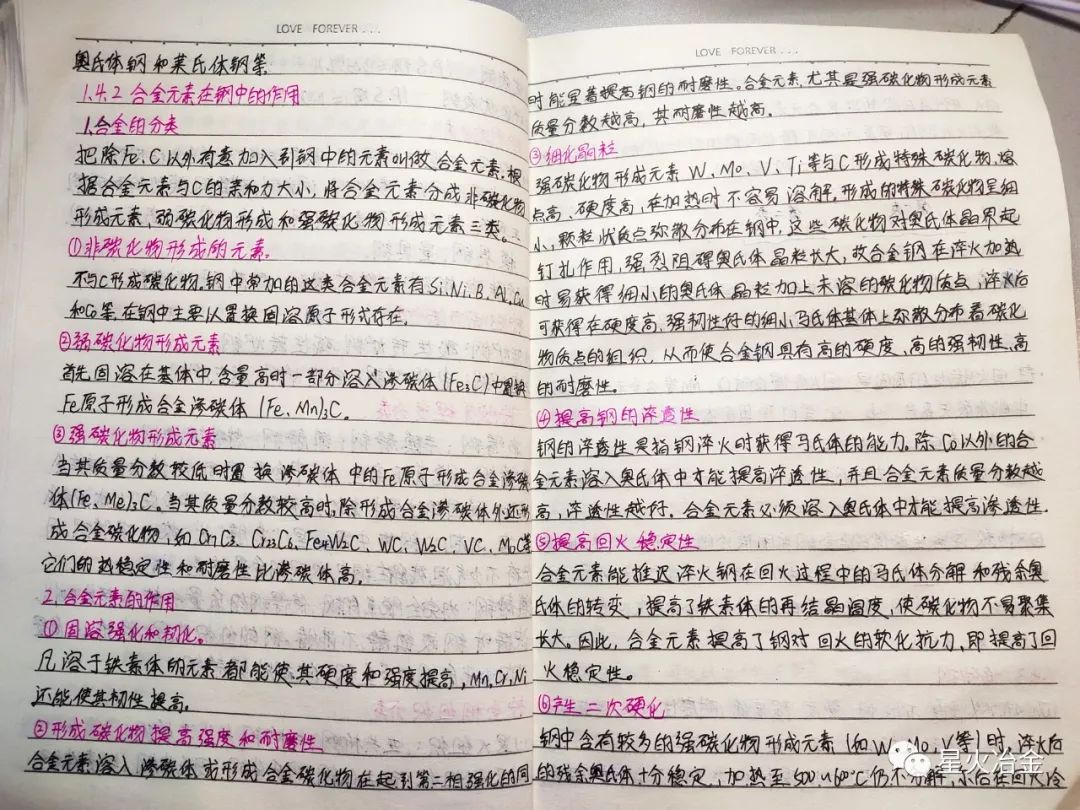 LOVE FOREVER...
奥氏体钢和莱氏体钢等.
1.4.2 合金元素在钢中的作用
1.合金的分类
把除Fe、C以外有意加入到钢中的元素叫做合金元素.根
据合金元素与C的亲和力大小,将合金元素分成非碳化物
形成元素,弱碳化物形成和强碳化物形成元素三类。
①非碳化物形成的元素。
不与C形成碳化物,钢中常加的这类合金元素有Si、Ni、B、Al、Cu
和Co等,在钢中主要以置换固溶原子形式存在.
②弱碳化物形成元素
首先固溶在基体中,含量高时一部分溶入渗碳体(Fe3C)中置换
Fe原子形成合金渗碳体(Fe、Mn)3C。
③强碳化物形成元素
当其质量分数较低时置换渗碳体中的Fe原子形成合金渗碳
体(Fe、Me)3C。当其质量分数较高时,除形成合金渗碳体外还形
成合金碳化物,如Cr7C3、Cr23C6、Fe4W2C、WC、W2C、VC、MoC等
它们的热稳定性和耐磨性比渗碳体高。
2.合金元素的作用
①固溶强化和韧化。
凡溶于铁素体的元素都能使其硬度和强度提高,Mn、Cr、Ni
还能使其韧性提高。
②形成碳化物提高强度和耐磨性
合金元素溶入渗碳体或形成合金碳化物在起到第二相强化的同
LOVE FOREVER...
时能显着提高钢的耐磨性。合金元素,尤其是强碳化物形成元素
质量分数越高,其耐磨性越高.
③细化晶粒
强碳化物形成元素W、Mo、V、Ti等与C形成特殊碳化物,熔
点高、硬度高,在加热时不容易溶解.形成的特殊碳化物呈细
小,颗粒状质点弥散分布在钢中,这些碳化物对奥氏体晶界起
钉扎作用,强烈阻碍奥氏体晶粒长大,故合金钢在淬火加热
时易获得细小的奥氏体晶粒加上未溶的碳化物质点,淬火后
可获得在硬度高、强韧性好的细小马氏体基体上弥散分布着碳化
物质点的组织,从而使合金钢具有高的硬度、高的强韧性、高
的耐磨性。
④提高钢的淬透性
钢的淬透性是指钢淬火时获得马氏体的能力.除Co以外的合
金元素溶入奥氏体中才能提高淬透性,并且合金元素质量分数越
高,淬透性越好.合金元素必须溶入奥氏体中才能提高渗透性.
⑤提高回火稳定性
合金元素能推迟淬火钢在回火过程中的马氏体分解和残余奥
氏体的转变,提高了铁素体的再结晶温度,使碳化物不易聚集
长大。因此,合金元素提高了钢对回火的软化抗力,即提高了回
火稳定性。
⑥产生二次硬化
钢中含有较多的强碳化物形成元素(如W、Mo、V等)时,淬火后
的残余奥氏体十分稳定,加热至500~60℃仍不分解,后在回火冷
星火冶金